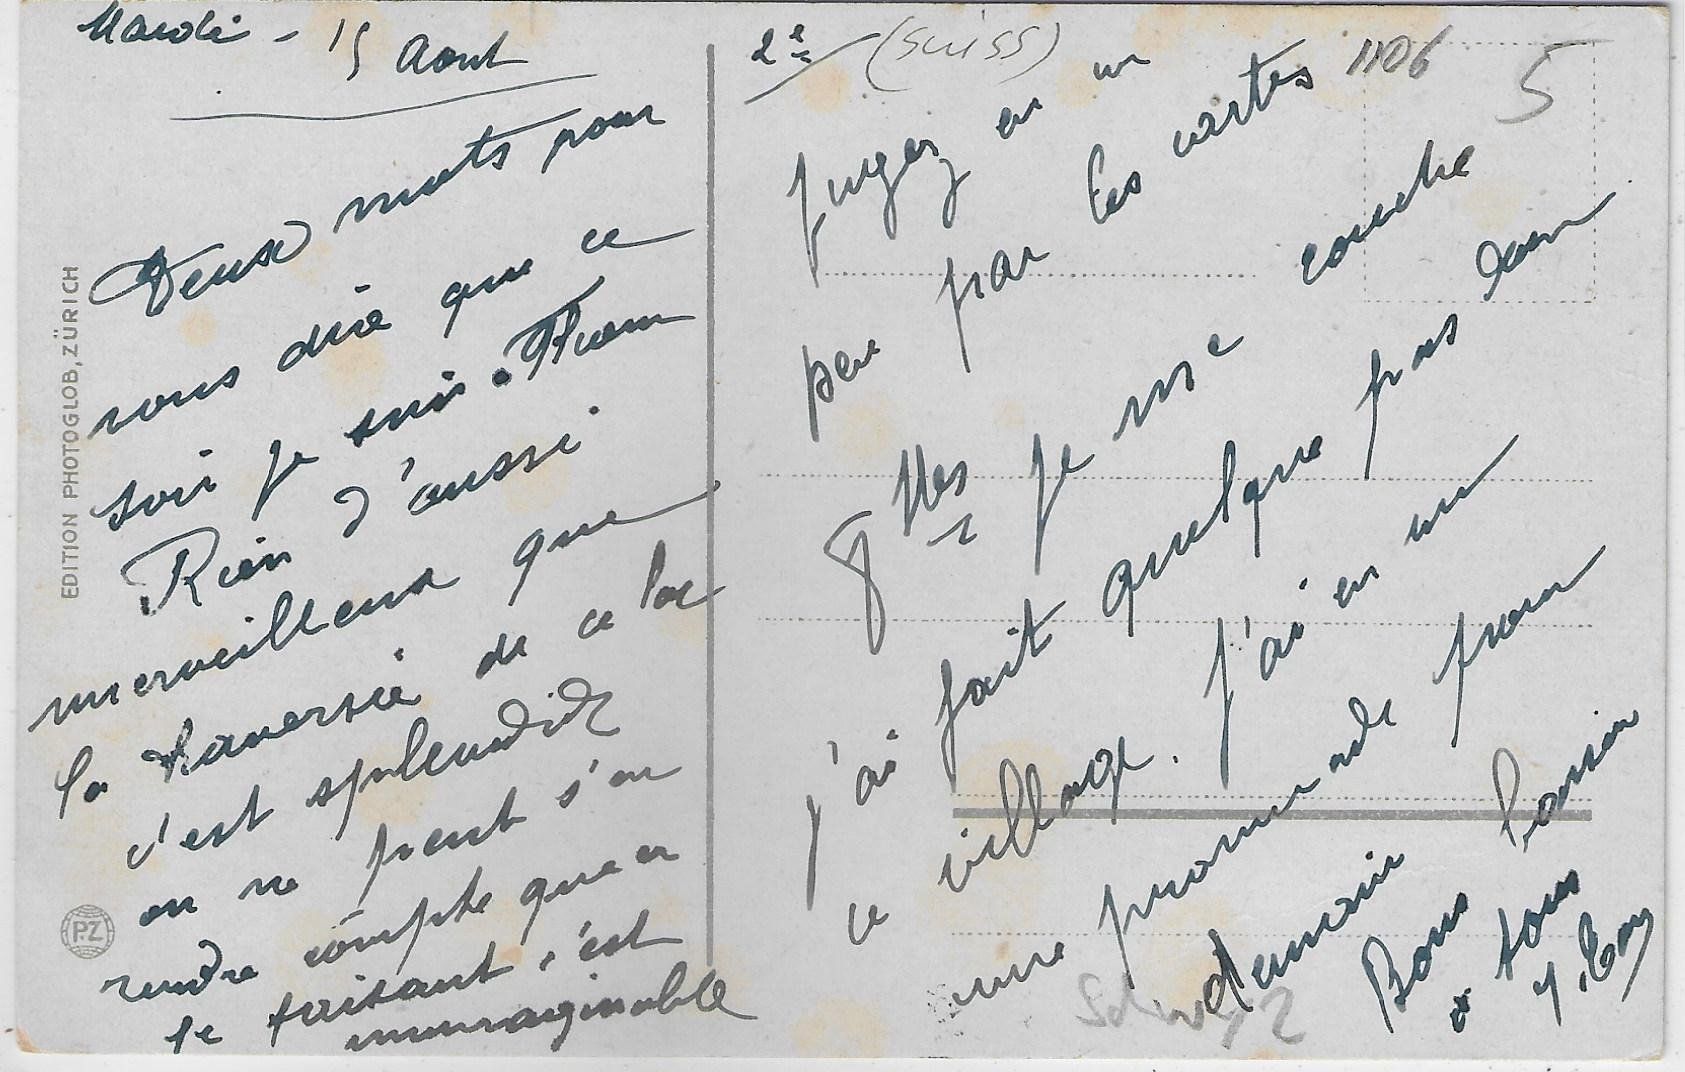 Mardi - 15 Aout
Deux mots pour
vous dire que ce
soir je suis
Rien d'aussi
merveilleux que
la traversée de ce lac
c'est splendide
on ne peut s'en
rendre compte que en
le faisant, c'est
immaginable
EDITION PHOTOGLOB, ZÜRICH
PZ
2e (Suiss)
1106
5
Jugez en un
peu par les cartes
8 Hes je me couche
j'ai fait quelque pas dans
ce village. J'ai en vue
une promenade pour
demain
Bons baisers
a tous
Schweiz